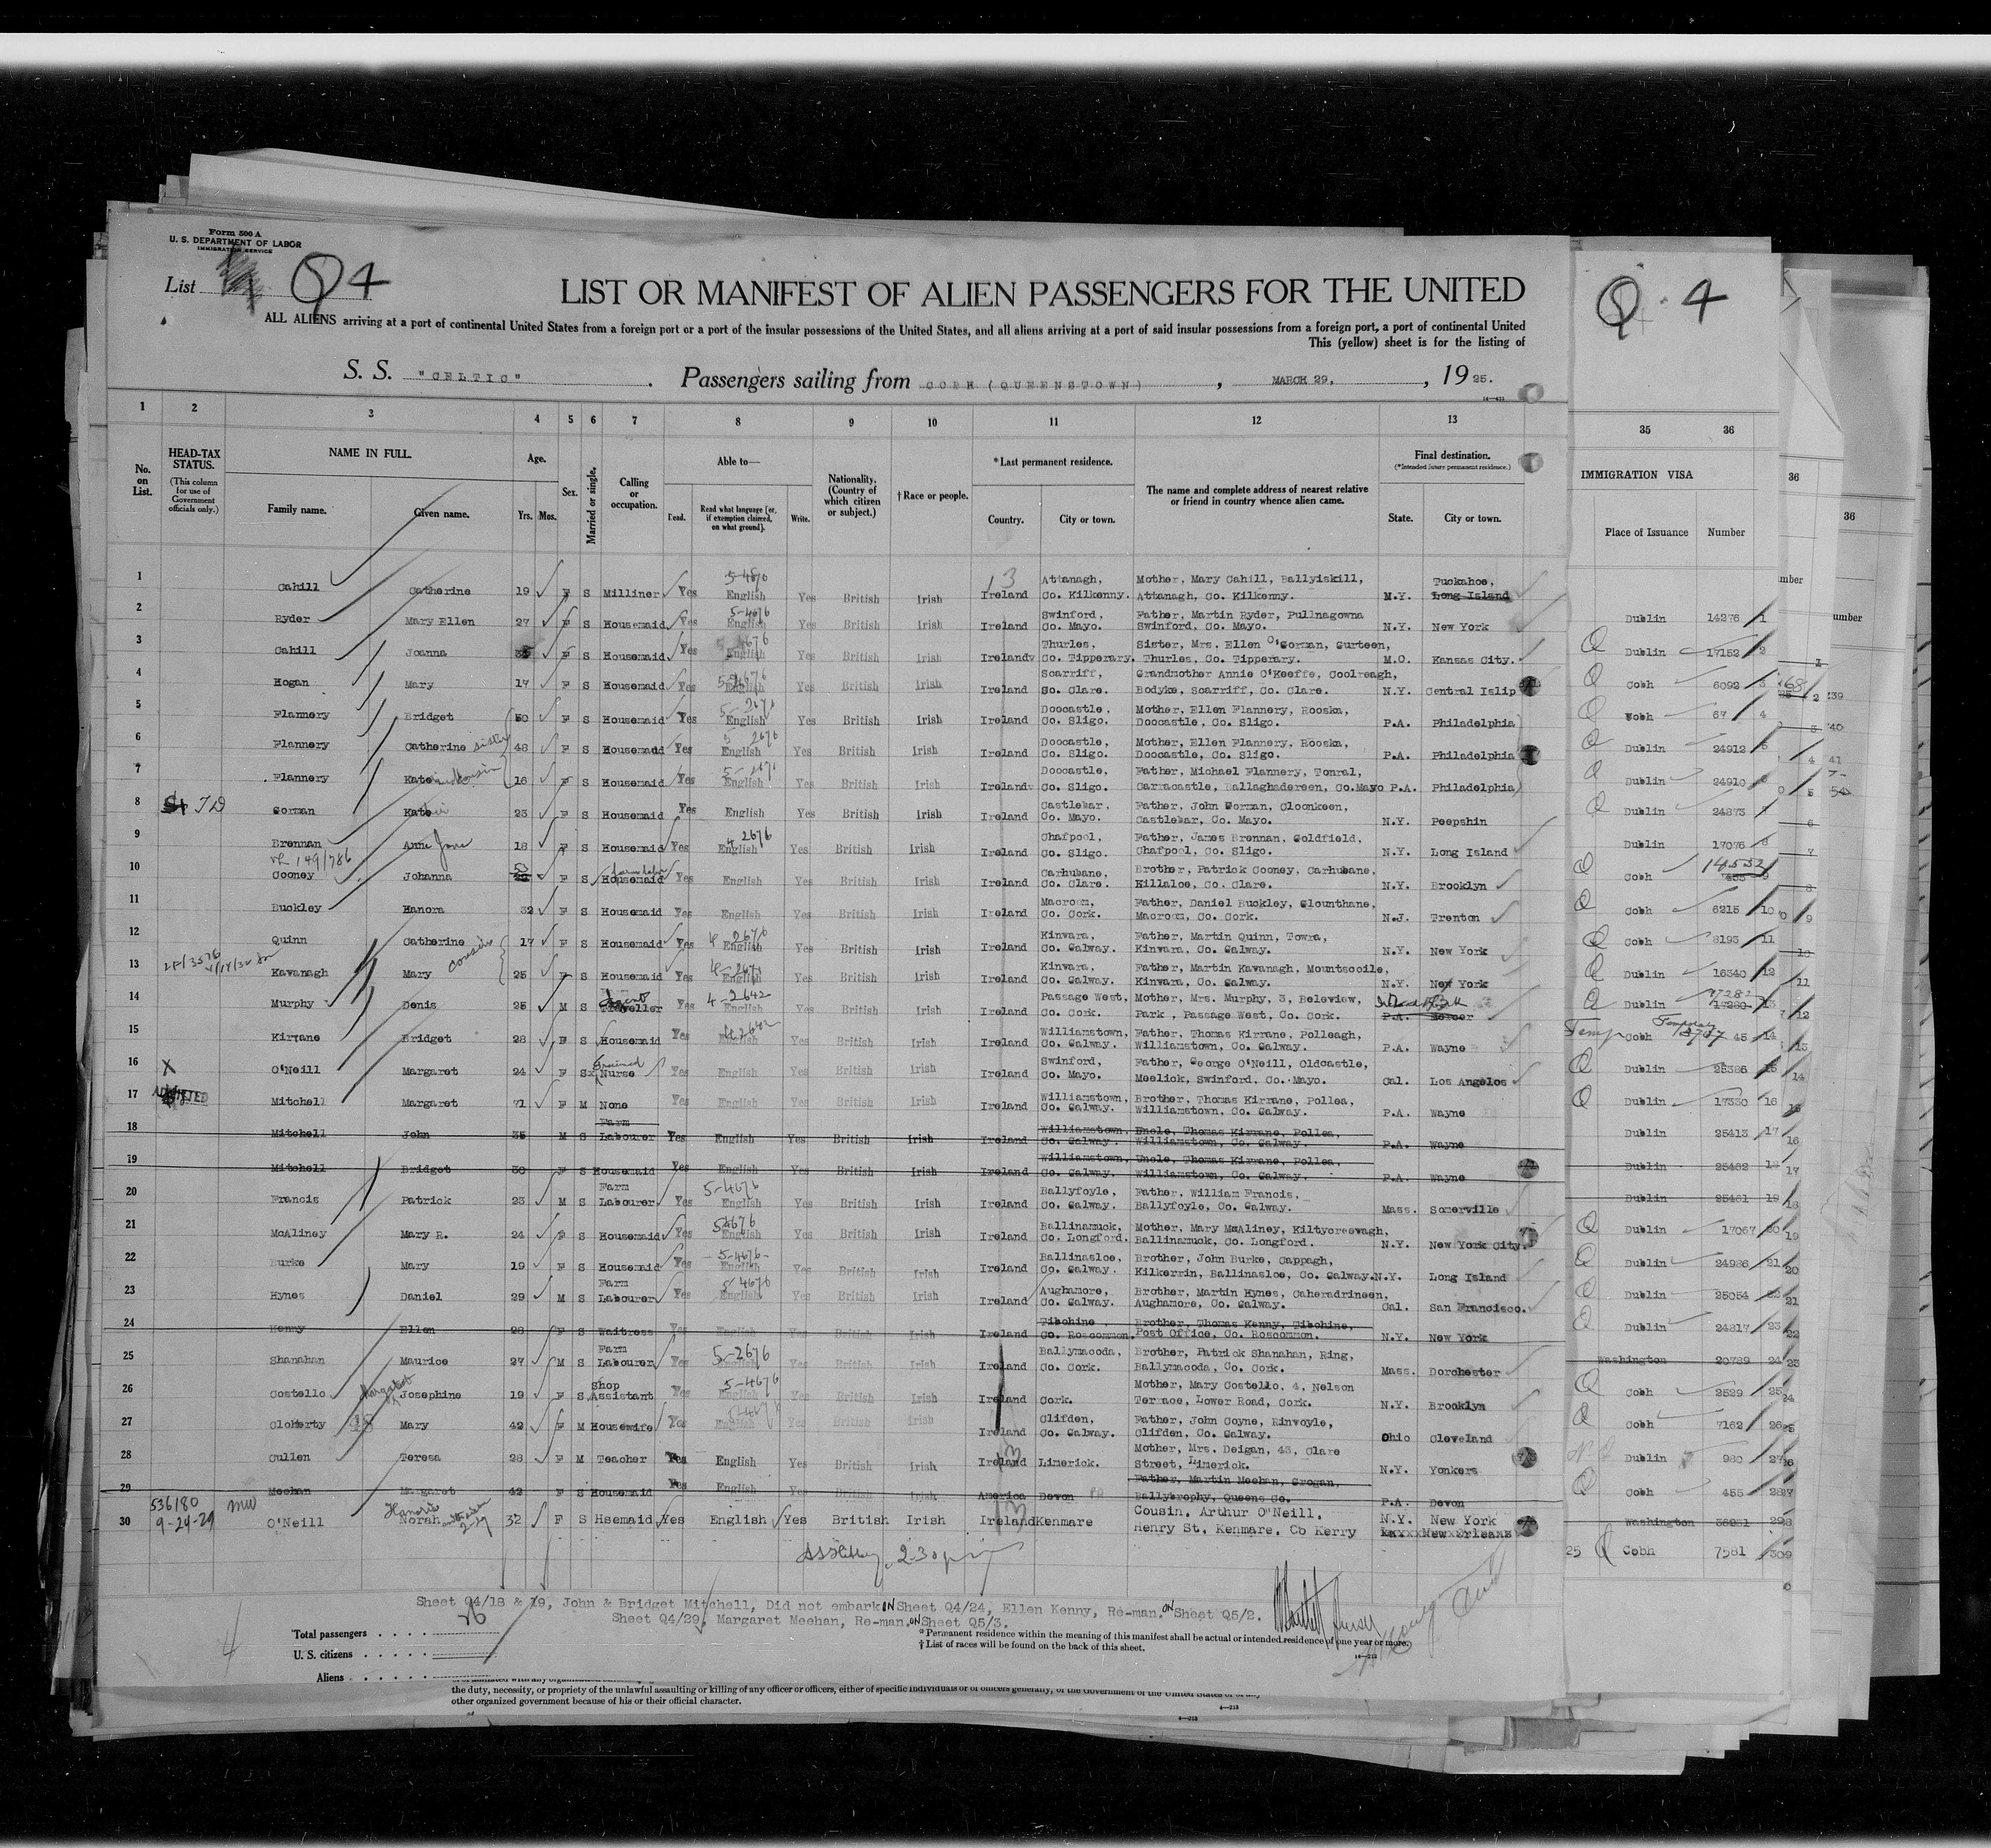 Form 500 A
U. S. DEPARTMENT OF LABOR
IMMIGRATION SERVICE
List Q4
LIST OR MANIFEST OF ALIEN PASSENGERS FOR THE UNITED
ALL ALIENS arriving at a port of continental United States from a foreign port or a port of the insular possessions of the United States, and all aliens arriving at a port of said insular possessions from a foreign port, a port of continental United
This (yellow) sheet is for the listing of
S. S. "CELTIC" . Passengers sailing from COBH (QUEENSTOWN) , MARCH 29, , 1925.
Q 4
1 2 3 4 5 6 7 8 9 10 11 12 13
35 36
No. on List.
HEAD-TAX STATUS.
(This column for use of Government officials only.)
NAME IN FULL.
Family name. Given name.
Age.
Yrs. Mos.
Sex.
Married or single.
Calling or occupation.
Able to—
Read. Read what language [or, if exemption claimed, on what ground]. Write.
Nationality. (Country of which citizen or subject.)
† Race or people.
* Last permanent residence.
Country. City or town.
The name and complete address of nearest relative or friend in country whence alien came.
Final destination.
(*Intended future permanent residence.)
State. City or town.
IMMIGRATION VISA
Place of Issuance Number
1 Cahill Catherine 19 F S Milliner Yes English Yes British Irish Ireland Attanagh, Co. Kilkenny. Mother, Mary Cahill, Ballyiskill, Attanagh, Co. Kilkenny. N.Y. Tuckahoe, Long Island Dublin 14276 1
2 Ryder Mary Ellen 27 F S Housemaid Yes English Yes British Irish Ireland Swinford, Co. Mayo. Father, Martin Ryder, Pullnagowna Swinford, Co. Mayo. N.Y. New York Dublin 17152 2
3 Cahill Joanna F S Housemaid Yes English Yes British Irish Ireland Thurles, Co. Tipperary. Sister, Mrs. Ellen O'Gorman, Gurteen, Thurles, Co. Tipperary. M.O. Kansas City. Cobh 6092 3
4 Hogan Mary 17 F S Housemaid Yes English Yes British Irish Ireland Scarriff, So. Clare. Grandmother Annie O'Keeffe, Coolreagh, Bodyke, Scarriff, Co. Clare. N.Y. Central Islip Cobh 67 4
5 Flannery Bridget 50 F S Housemaid Yes English Yes British Irish Ireland Doocastle, Co. Sligo. Mother, Ellen Flannery, Rooska, Doocastle, Co. Sligo. P.A. Philadelphia Dublin 24912 5
6 Flannery Catherine sister 48 F S Housemaid Yes English Yes British Irish Ireland Doocastle, Co. Sligo. Mother, Ellen Flannery, Rooska, Doocastle, Co. Sligo. P.A. Philadelphia Dublin 24910 6
7 Flannery Kate cousin 16 F S Housemaid Yes English Yes British Irish Ireland Doocastle, Co. Sligo. Father, Michael Flannery, Tonral, Carracastle, Ballaghadereen, Co.Mayo P.A. Philadelphia Dublin 24873 7
8 Gorman Kate 23 F S Housemaid Yes English Yes British Irish Ireland Castlebar, Co. Mayo. Father, John Gorman, Cloonkeen, Castlebar, Co. Mayo. N.Y. Peepshin Dublin 17076 8
9 Brennan Anne Jane 18 F S Housemaid Yes English Yes British Irish Ireland Chafpool, Co. Sligo. Father, James Brennan, Coldfield, Chafpool, Co. Sligo. N.Y. Long Island Cobh 14532 9
10 Cooney Johanna F S Housemaid Yes English Yes British Irish Ireland Carhubane, Co. Clare. Brother, Patrick Cooney, Carhubane, Killaloe, Co. Clare. N.Y. Brooklyn Cobh 6215 10
11 Buckley Hanora 32 F S Housemaid Yes English Yes British Irish Ireland Macroom, Co. Cork. Father, Daniel Buckley, Clounthane, Macroom, Co. Cork. N.J. Trenton Cobh 8193 11
12 Quinn Catherine 17 F S Housemaid Yes English Yes British Irish Ireland Kinvara, Co. Galway. Father, Martin Quinn, Towra, Kinvara, Co. Galway. N.Y. New York Dublin 16340 12
13 Kavanagh Mary cousin 25 F S Housemaid Yes English Yes British Irish Ireland Kinvara, Co. Galway. Father, Martin Kavanagh, Mountscoile, Kinvara, Co. Galway. N.Y. New York Dublin 17280 13
14 Murphy Denis 25 M S Traveller Agent Yes English Yes British Irish Ireland Passage West, Co. Cork. Mother, Mrs. Murphy, 3, Beleview, Park , Passage West, Co. Cork. P.A. Mercer Cobh 45 14
15 Kirrane Bridget 28 F S Housemaid Yes English Yes British Irish Ireland Williamstown, Co. Galway. Father, Thomas Kirrane, Polleagh, Williamstown, Co. Galway. P.A. Wayne Dublin 25386 15
16 O'Neill Margaret 24 F S Trained Nurse Yes English Yes British Irish Ireland Swinford, Co. Mayo. Father, George O'Neill, Oldcastle, Meelick, Swinford, Co. Mayo. Cal. Los Angelos Dublin 17330 16
17 ADMITTED Mitchell Margaret 71 F M None Yes English Yes British Irish Ireland Williamstown, Co. Galway. Brother, Thomas Kirrane, Pollea, Williamstown, Co. Galway. P.A. Wayne Dublin 25413 17
18 Mitchell John 35 M S Farm Labourer Yes English Yes British Irish Ireland Williamstown, Co. Galway. Uncle, Thomas Kirrane, Pollea, Williamstown, Co. Galway. P.A. Wayne Dublin 25462 18
19 Mitchell Bridget 30 F S Housemaid Yes English Yes British Irish Ireland Williamstown, Co. Galway. Uncle, Thomas Kirrane, Pollea, Williamstown, Co. Galway. P.A. Wayne Dublin 25461 19
20 Francis Patrick 23 M S Farm Labourer Yes English Yes British Irish Ireland Ballyfoyle, Co. Galway. Father, William Francis, Ballyfoyle, Co. Galway. Mass. Somerville Dublin 17067 20
21 McAliney Mary R. 24 F S Housemaid Yes English Yes British Irish Ireland Ballinamuck, Co. Longford. Mother, Mary McAliney, Kiltycreewagh, Ballinamuck, Co. Longford. N.Y. New York City. Dublin 24986 21
22 Burke Mary 19 F S Housemaid Yes English Yes British Irish Ireland Ballinasloe, Co. Galway. Brother, John Burke, Cappagh, Kilkerrin, Ballinasloe, Co. Galway. N.Y. Long Island Dublin 25054 22
23 Hynes Daniel 29 M S Farm Labourer Yes English Yes British Irish Ireland Aughamore, Co. Galway. Brother, Martin Hynes, Caheradrineen, Aughamore, Co. Galway. Cal. San Francisco. Dublin 24817 23
24 Kenny Ellen 28 F S Waitress Yes English Yes British Irish Ireland Tibohine, Co. Roscommon. Brother, Thomas Kenny, Tibohine, Post Office, Co. Roscommon. N.Y. New York Washington 20789 24
25 Shanahan Maurice 27 M S Farm Labourer Yes English Yes British Irish Ireland Ballymacoda, Co. Cork. Brother, Patrick Shanahan, Ring, Ballymacoda, Co. Cork. Mass. Dorchester Cobh 2529 25
26 Costello Margaret Josephine 19 F S Shop Assistant Yes English Yes British Irish Ireland Cork. Mother, Mary Costello, 4, Nelson Terrace, Lower Road, Cork. N.Y. Brooklyn Cobh 7162 26
27 Cloherty Mary 42 F M Housewife Yes English Yes British Irish Ireland Clifden, Co. Galway. Father, John Coyne, Rinvoyle, Clifden, Co. Galway. Ohio Cleveland Dublin 980 27
28 Cullen Teresa 28 F M Teacher Yes English Yes British Irish Ireland Limerick. Mother, Mrs. Deigan, 43, Clare Street, Limerick. N.Y. Yonkers Cobh 455 28
29 Meehan Margaret 42 F S Housemaid Yes English Yes British Irish America Devon Father, Martin Meehan, Grogan, Ballybrophy, Queens Co. P.A. Devon Washington 29
536180
9-24-29
30 O'Neill Norah 32 F S Hsemaid Yes English Yes British Irish Ireland Kenmare Cousin, Arthur O'Neill, Henry St, Kenmare, Co Kerry N.Y. New York 25 Cobh 7581 30
Sheet Q4/18 & 19, John & Bridget Mitchell, Did not embark Sheet Q4/24, Ellen Kenny, Re-man. on Sheet Q5/2.
Sheet Q4/29, Margaret Meehan, Re-man. on Sheet Q5/3.
Total passengers . . . . 26
U. S. citizens . . . . .
Aliens . . . . . .
* Permanent residence within the meaning of this manifest shall be actual or intended residence of one year or more.
† List of races will be found on the back of this sheet.
the duty, necessity, or propriety of the unlawful assaulting or killing of any officer or officers, either of specific individuals or of officers generally, of the Government of the United States or of any
other organized government because of his or their official character.